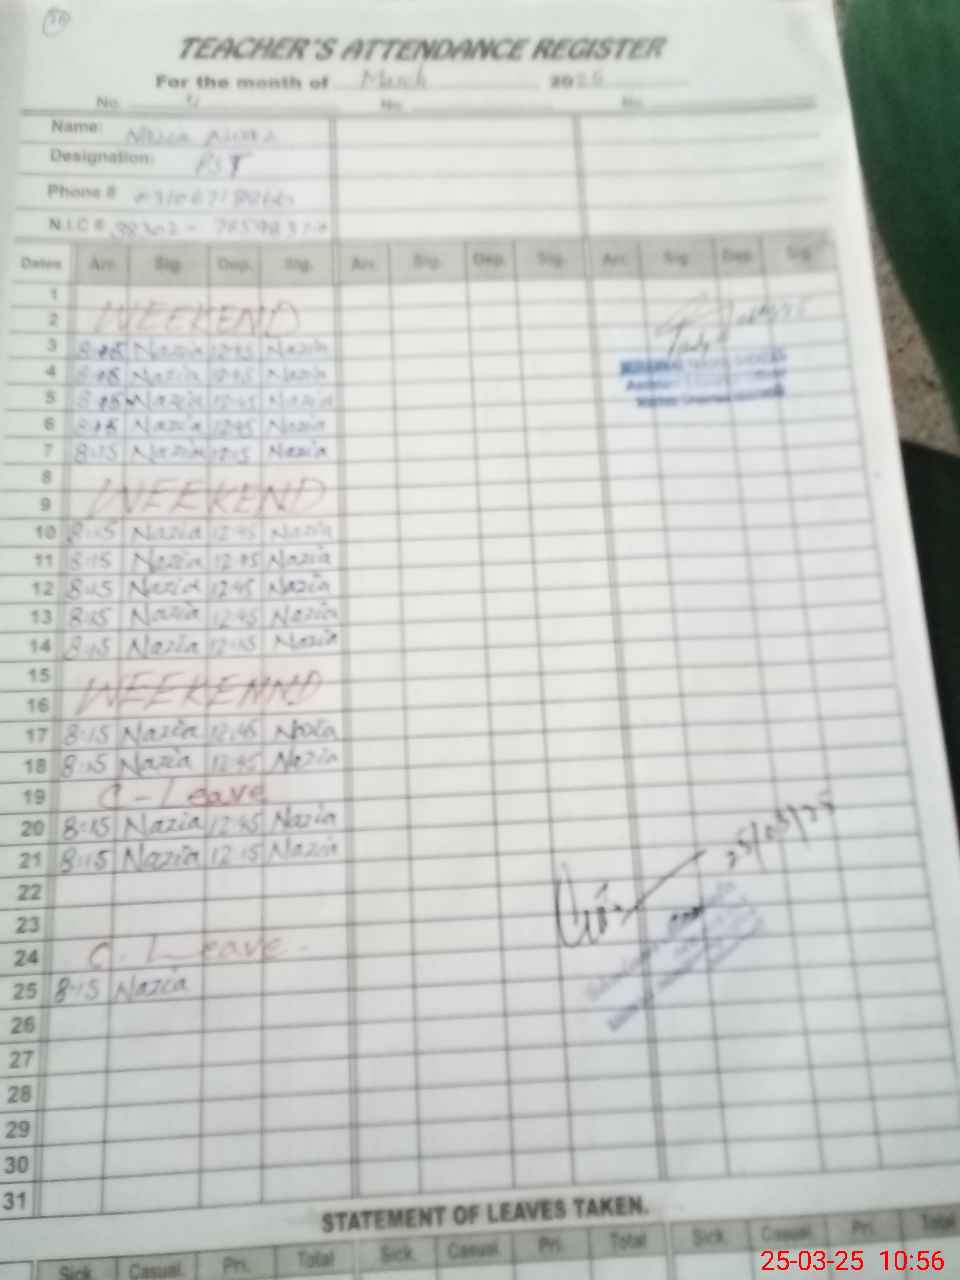 TEACHER'S ATTENDANCE REGISTER
For the month of March 2025
No. No. No.
Name: Nazia
Designation: PST
Phone #
N.I.C #
Dates Arr. Sig. Dep. Sig. Arr. Sig. Dep. Sig. Arr. Sig. Dep. Sig.
1
2 WEEKEND
3 8:15 Nazia 12:45 Nazia
4 8:15 Nazia 12:45 Nazia
5 8:15 Nazia 12:45 Nazia
6 8:15 Nazia 12:45 Nazia
7 8:15 Nazia 12:15 Nazia
8
9 WEEKEND
10 8:15 Nazia 12:45 Nazia
11 8:15 Nazia 12:45 Nazia
12 8:15 Nazia 12:45 Nazia
13 8:15 Nazia 12:45 Nazia
14 8:15 Nazia 12:15 Nazia
15
16 WEEKEMND
17 8:15 Nazia 12:45 Nazia
18 8:15 Nazia 12:45 Nazia
19 C-Leave
20 8:15 Nazia 12:45 Nazia
21 8:15 Nazia 12:15 Nazia
22
23
24 C. Leave.
25 8:15 Nazia
25/03/25
26
27
28
29
30
31
STATEMENT OF LEAVES TAKEN.
Sick. Casual. Pri. Total Sick. Casual. Pri. Total Sick. Casual. Pri. Total
25-03-25 10:56